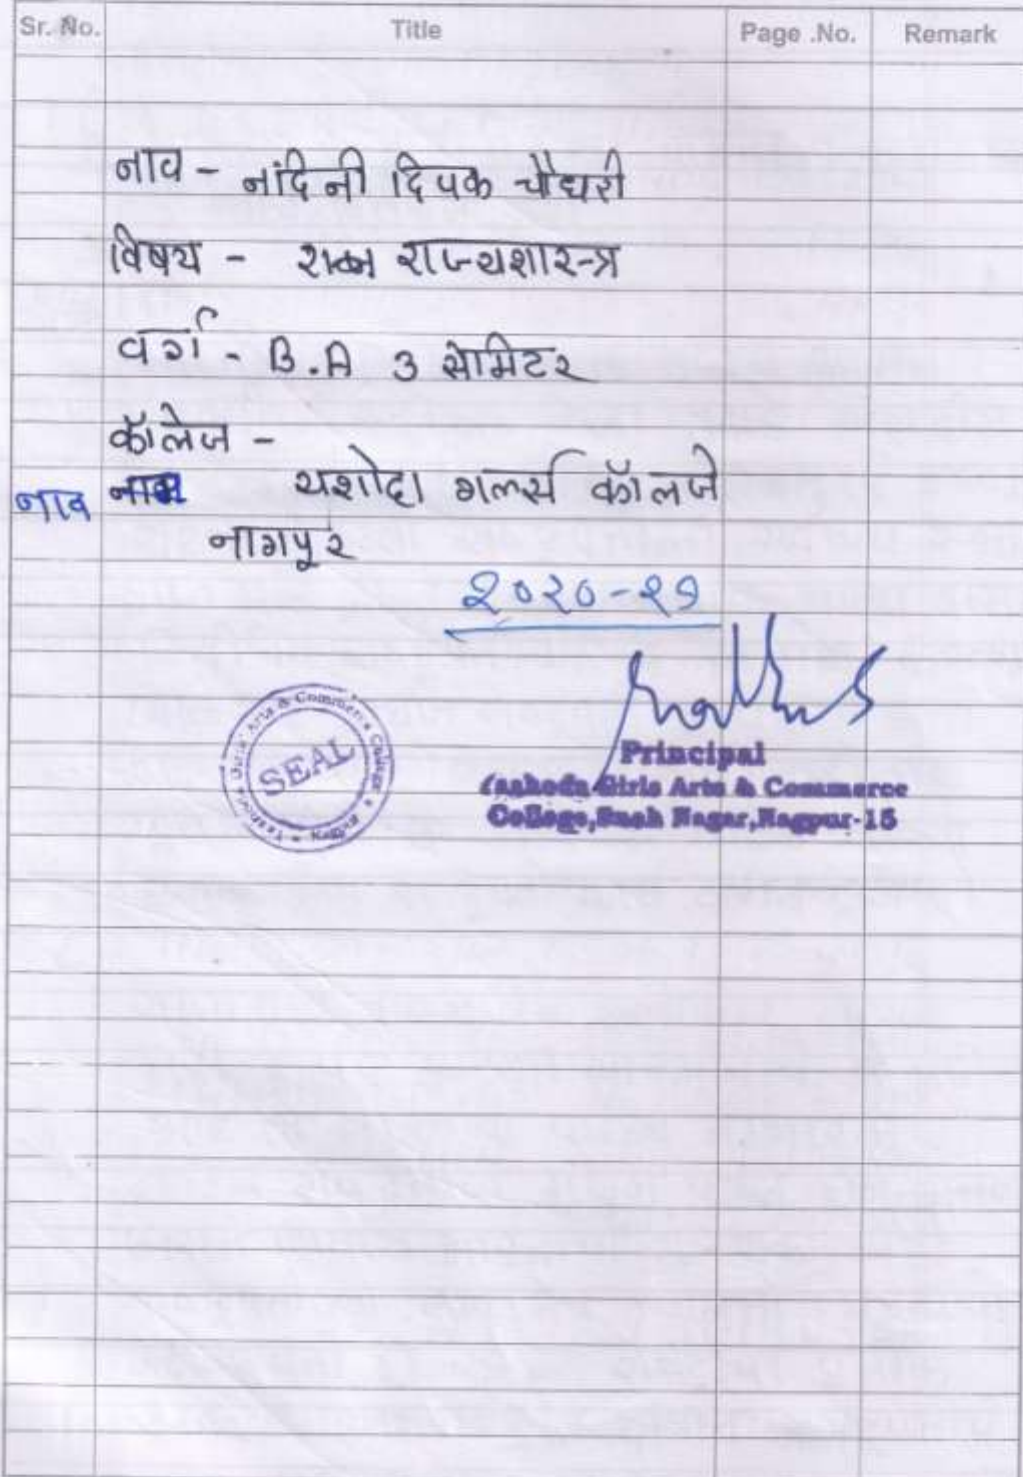 Sr. No. Title Page .No. Remark
नाव - नांदिनी दिपक चौधरी
विषय - राज्यशास्त्र
वर्ग - B.A 3 सेमिटर
कॉलेज -
नाव यशोदा गर्ल्स कॉलजे
नागपूर
२०२०-२१
SEAL
Principal
Yashoda Girls Arts & Commerce
College, Sneh Nagar, Nagpur-15